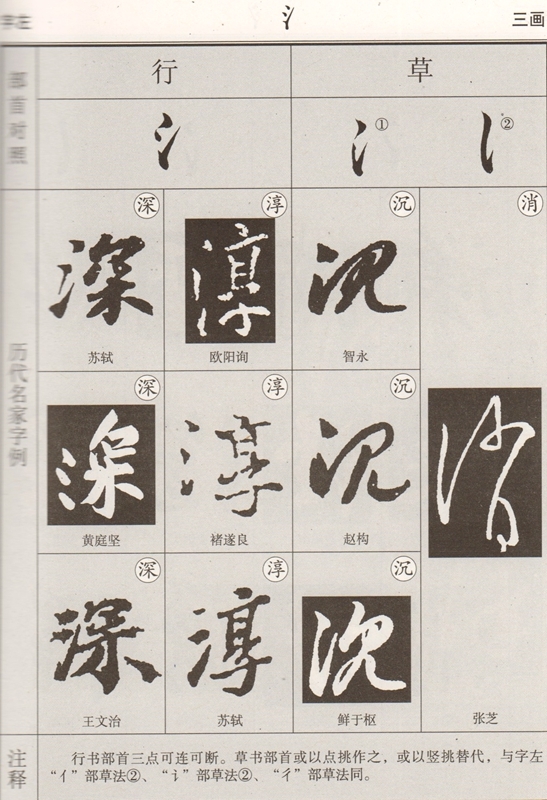 字左
氵
三画
部首对照
行
草
氵
氵①
②
历代名家字例
深
淳
沉
消
深
淳
沉
消
苏轼
欧阳询
智永
深
淳
沉
深
淳
沉
黄庭坚
褚遂良
赵构
深
淳
沉
深
淳
沉
王文治
苏轼
鲜于枢
张芝
注释
行书部首三点可连可断。草书部首或以点挑作之，或以竖挑替代，与字左
“亻”部草法②、“讠”部草法②、“彳”部草法同。